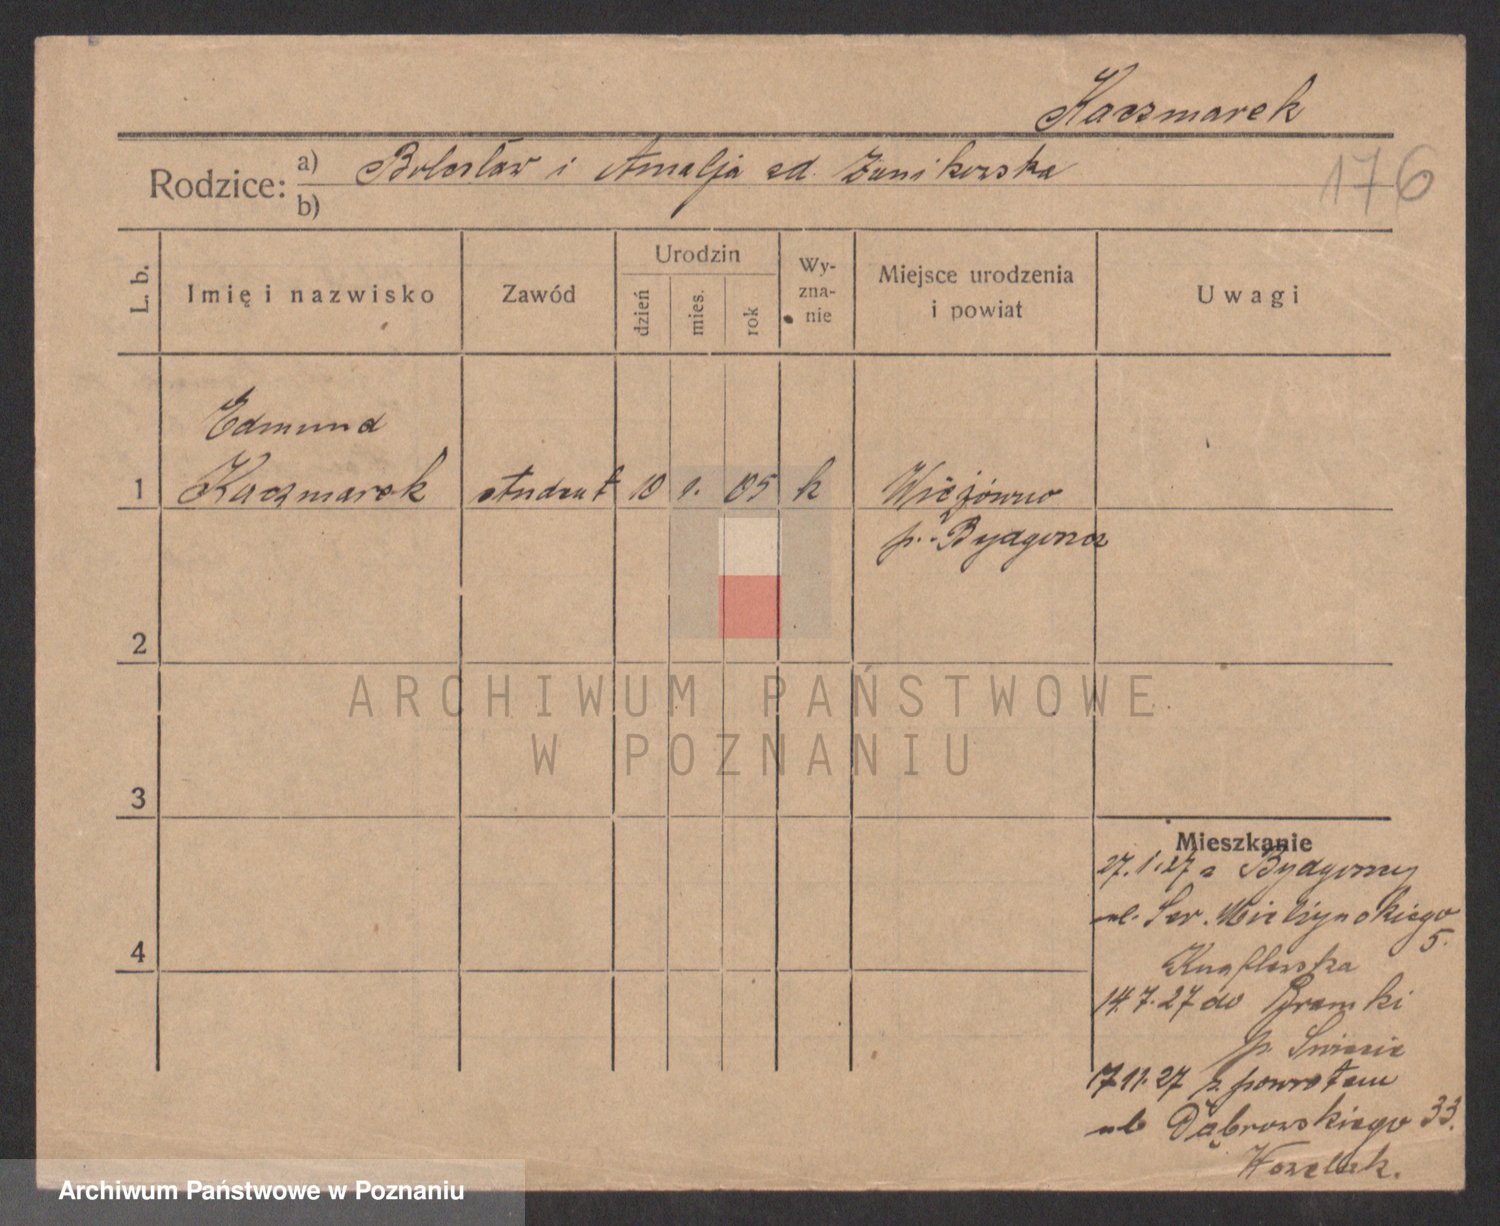 Kaczmarek
Rodzice: a) Bolesław i Amalja zd. Żunikorska
b)
176
L. b.
Imię i nazwisko
Zawód
Urodzin
dzień
mies.
rok
Wy-
zna-
nie
Miejsce urodzenia
i powiat
Uwagi
Edmund
1 Kaczmarek student 10 05 k
p. Bydgoszcz
2
3
4
ARCHIWUM PAŃSTWOWE
W POZNANIU
Mieszkanie
27.1.27 z Bydgoszczy
ul. Sew. Mielżyńskiego
5.
14.7.27 do Bramki
p. Świecie
17.11.27 z powrotem
ul. Dąbrowskiego 33.
Archiwum Państwowe w Poznaniu